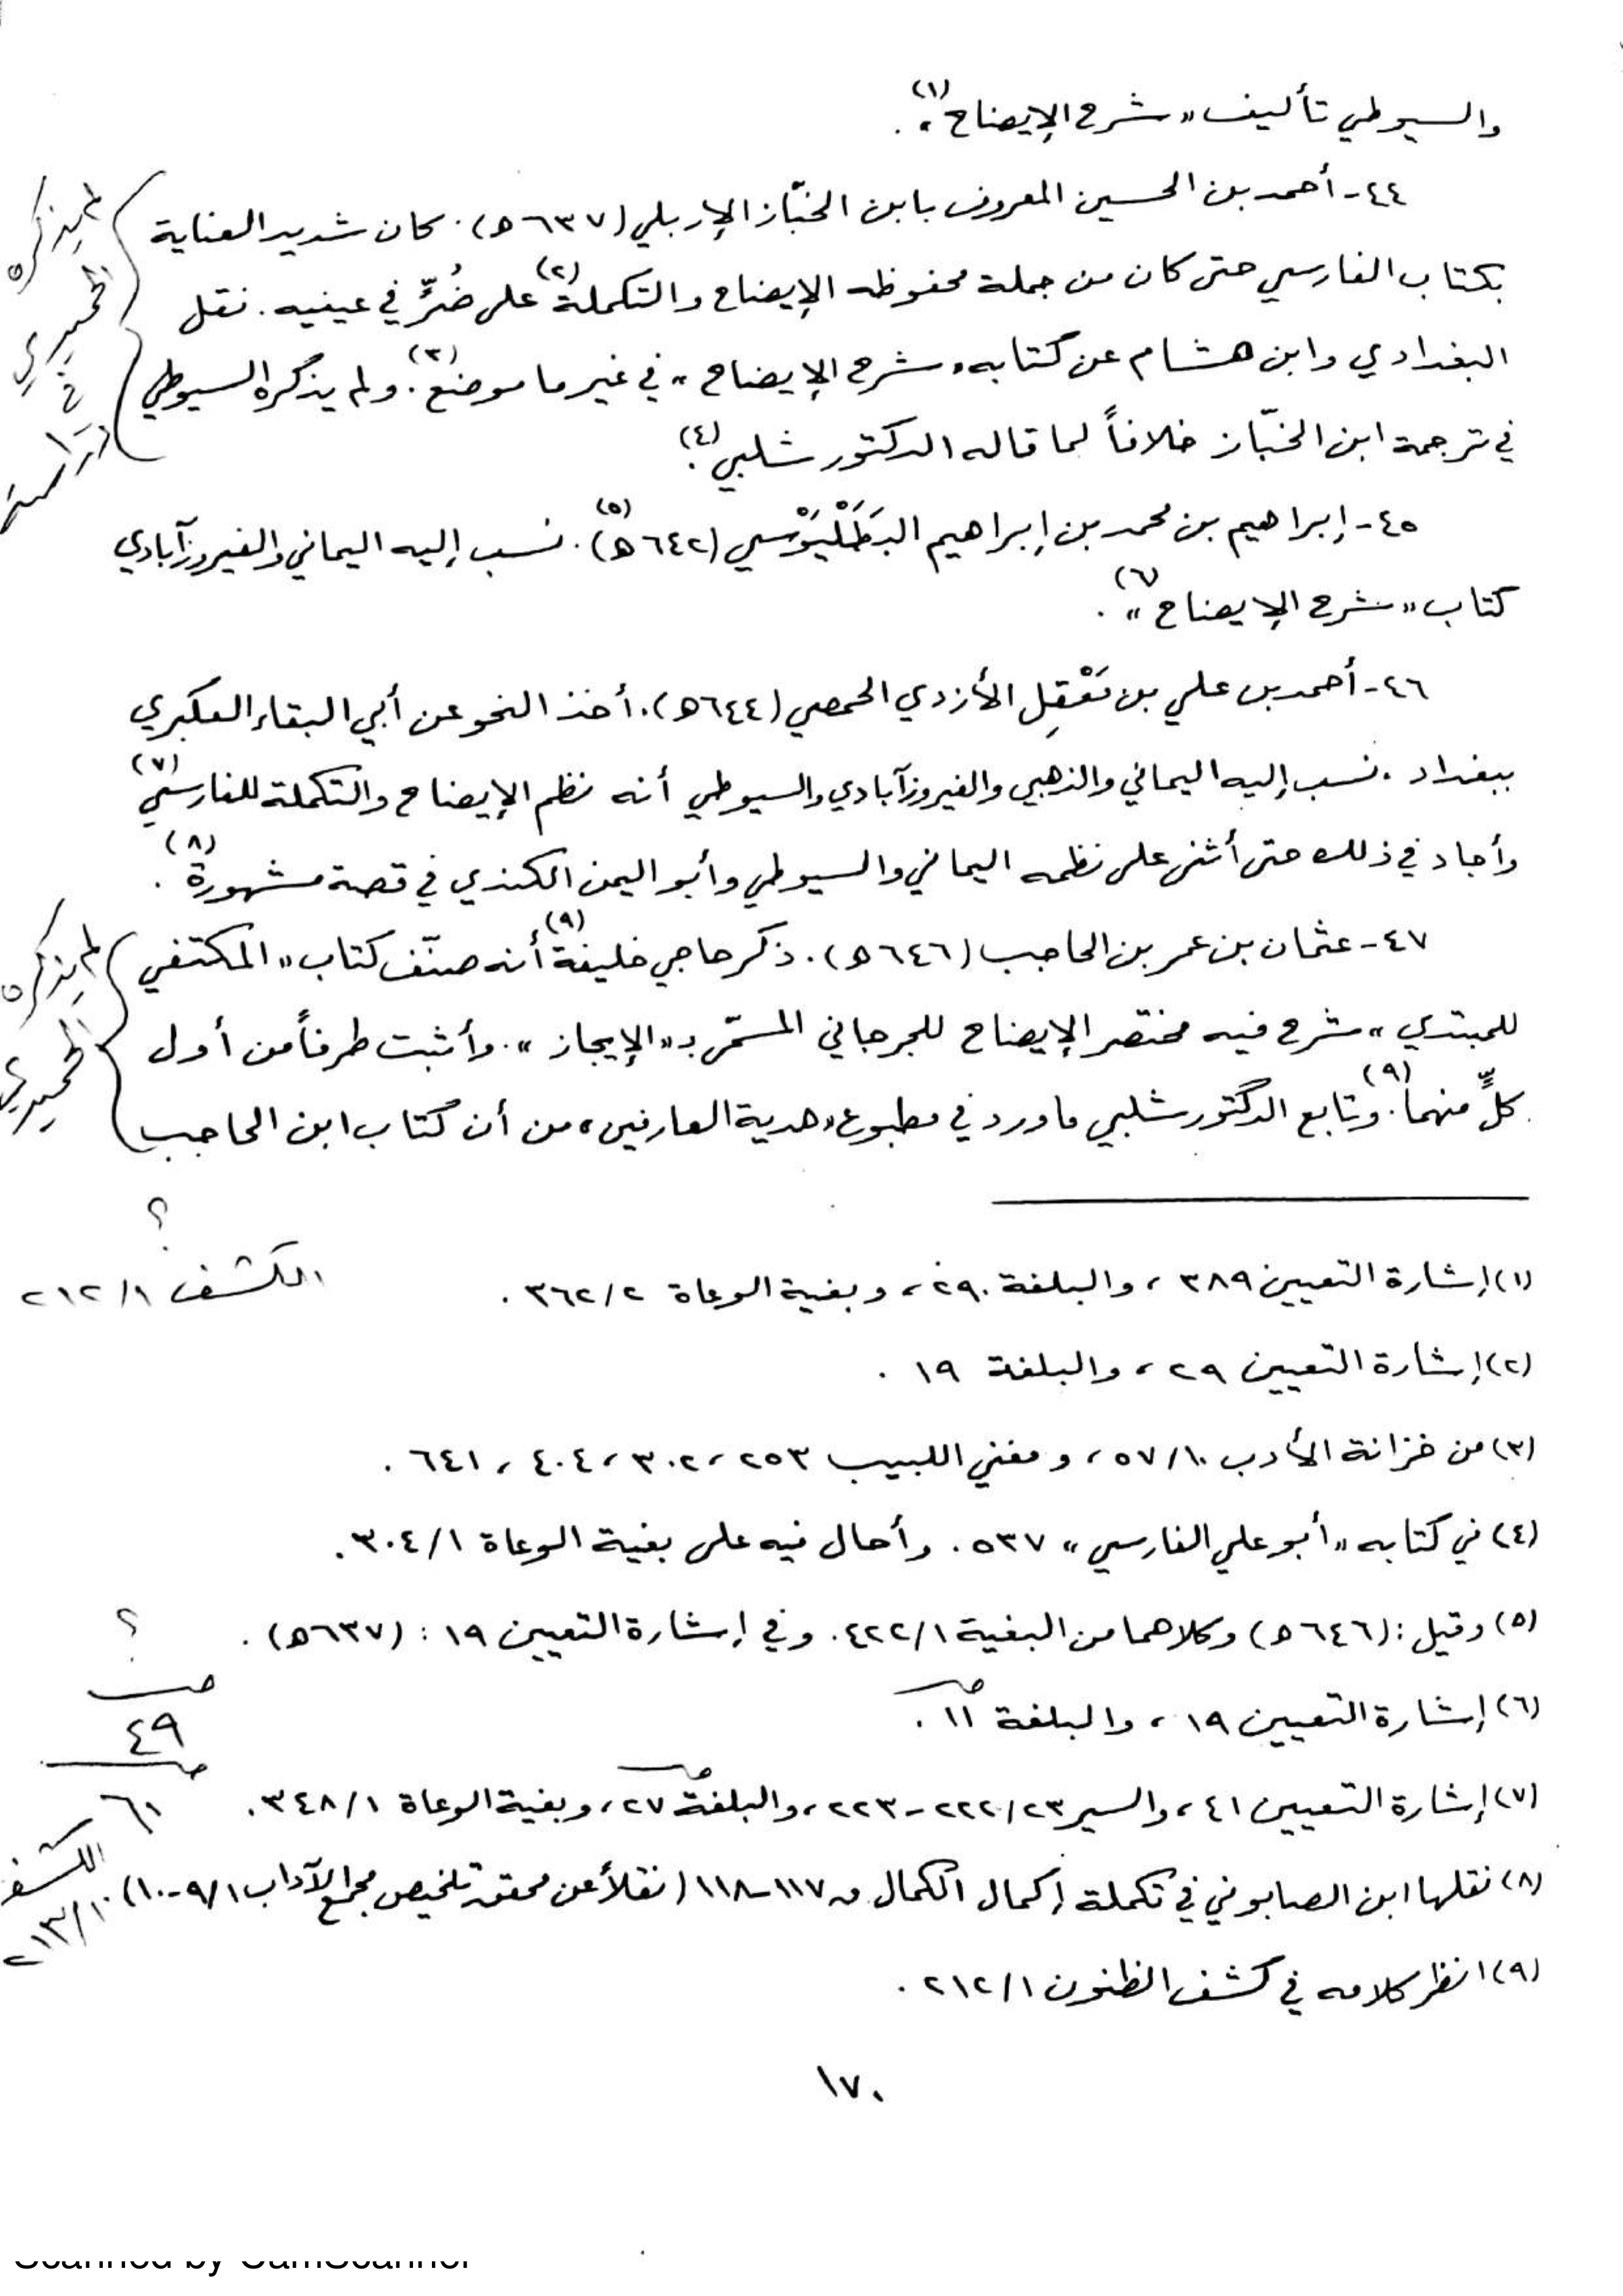 والسيوطي تأليف «شرح الإيضاح»(١).
٤٤- أحمد بن الحسين المعروف بابن الخبّاز الإربلي (٦٣٧ هـ). كان شديد العناية
بكتاب الفارسي حتى كان من جملة محفوظه الإيضاح والتكملة(٢) على ضُرٍّ في عينيه. نقل
البغدادي وابن هشام عن كتابه «شرح الإيضاح» في غير ما موضع(٣). ولم يذكره السيوطي
في ترجمة ابن الخبّاز خلافاً لما قاله الدكتور شلبي(٤).
لم يذكره
الحميري
في
دراسته
٤٥- إبراهيم بن محمد بن إبراهيم البَطَلْيَوْسي (٦٤٢ هـ)(٥). نسب إليه اليماني والفيروزآبادي
كتاب «شرح الإيضاح»(٦).
٤٦- أحمد بن علي بن مَعْقِل الأزدي الحمصي (٦٤٤ هـ). أخذ النحو عن أبي البقاء العكبري
ببغداد. نسب إليه اليماني والذهبي والفيروزآبادي والسيوطي أنه نظم الإيضاح والتكملة للفارسي(٧)
وأجاد في ذلك حتى أثنى على نظمه اليماني والسيوطي وأبو اليمن الكندي في قصة مشهورة(٨).
٤٧- عثمان بن عمر بن الحاجب (٦٤٦ هـ). ذكر حاجي خليفة(٩) أنه صنّف كتاب «المكتفي
للمبتدي» شرح فيه مختصر الإيضاح للجرجاني المسمّى بـ«الإيجاز». وأثبت طرفاً من أول
كلٍّ منهما(٩). وتابع الدكتور شلبي ما ورد في مطبوع «هدية العارفين» من أن كتاب ابن الحاجب
لم يذكره
الحميري
؟
(١) إشارة التعيين ٣٨٩، والبلغة ٢٩٠، وبغية الوعاة ٣٦٢/٢.
الكشف ٢١٢/١
(٢) إشارة التعيين ٢٩، والبلغة ١٩.
(٣) من خزانة الأدب ٥٧/١٠، ومغني اللبيب ٢٥٣، ٣٠٢، ٤٠٤، ٦٤١.
(٤) في كتابه «أبو علي الفارسي» ٥٣٧. وأحال فيه على بغية الوعاة ٣٠٤/١.
(٥) وقيل: (٦٤٦ هـ) وكلاهما من البغية ٤٢٢/١. وفي إشارة التعيين ١٩: (٦٣٧ هـ).
؟
(٦) إشارة التعيين ١٩، والبلغة ١١.
ص
٤٩
ص
٦١
(٧) إشارة التعيين ٤١، والسير ٢٢٢/٢٣-٢٢٣، والبلغة ٢٧، وبغية الوعاة ٣٤٨/١.
(٨) نقلها ابن الصابوني في تكملة إكمال الكمال ص ١١٧-١١٨ (نقلاً عن محقق تلخيص مجمع الآداب ٩/١-١٠).
الكشف
٢١٣/١
(٩) انظر كلامه في كشف الظنون ٢١٢/١.
١٧٠
Scanned by CamScanner